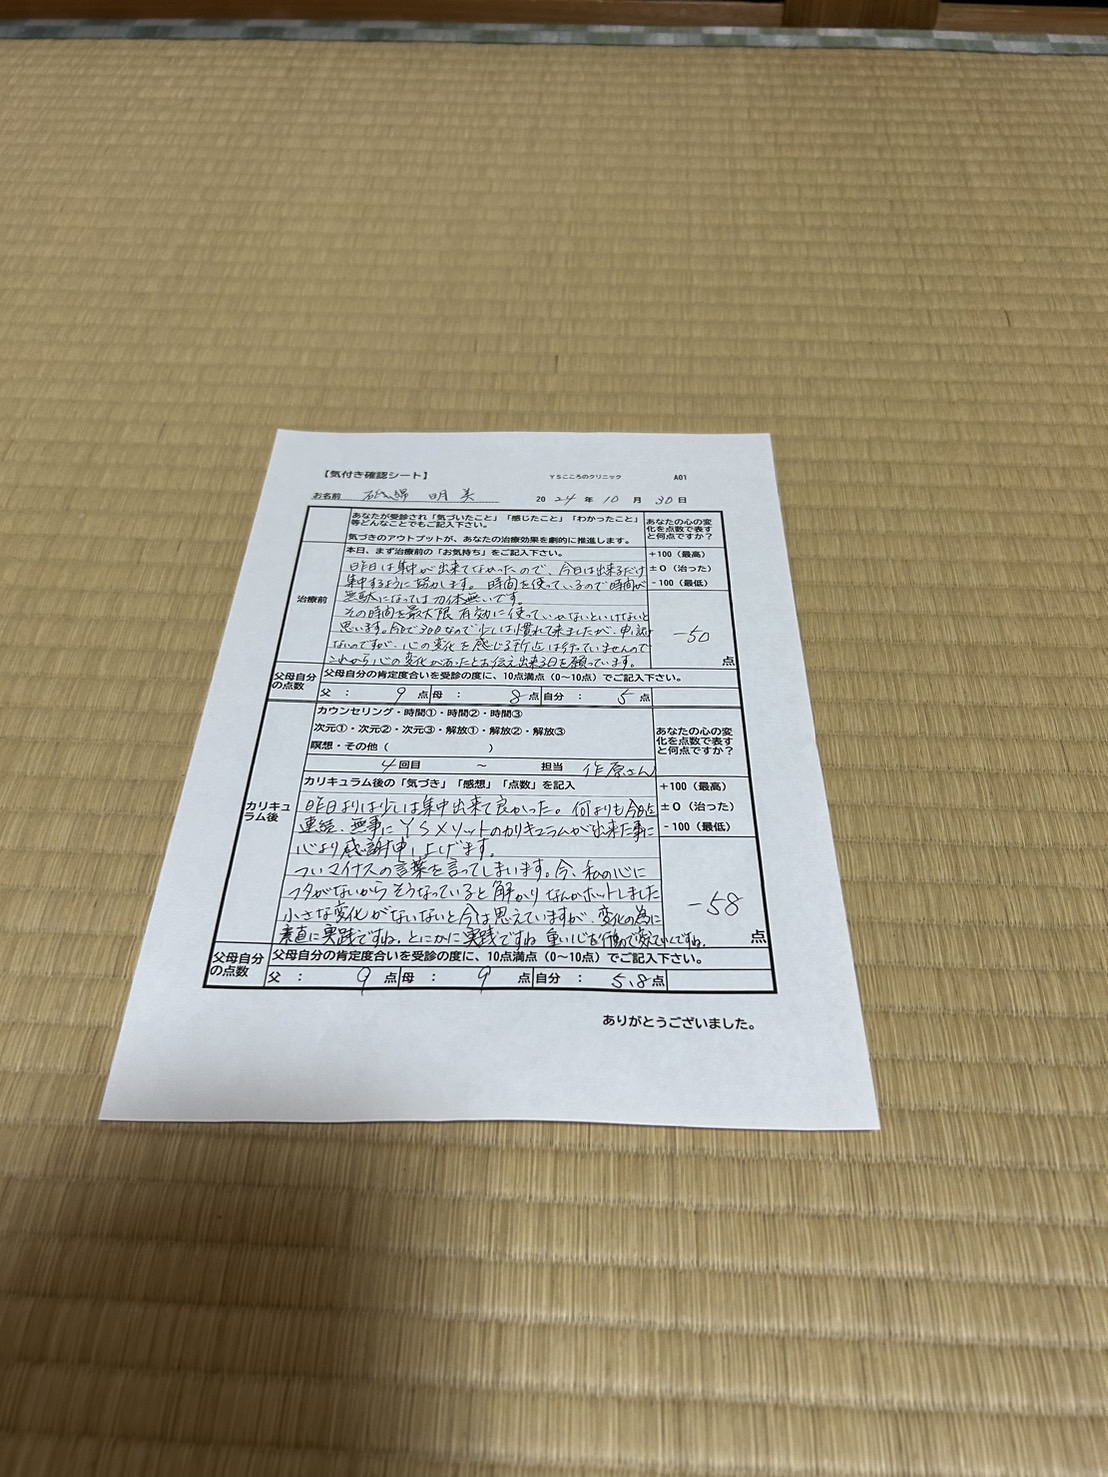 【気付き確認シート】 YSこころのクリニック A01
お名前 明美 2024年10月30日
あなたが受診され「気づいたこと」「感じたこと」「わかったこと」
等どんなことでもご記入下さい。
気づきのアウトプットが、あなたの治療効果を劇的に推進します。
あなたの心の変
化を点数で表す
と何点ですか?
治療前
本日、まず治療前の「お気持ち」をご記入下さい。
昨日は集中が出来てなかったので、今日は出来るだけ
集中するように努力します。時間を使っているので時間が
無駄になっては勿体無いです。
その時間を最大限有効に使っていかないといけないと
思います。今日で3日なので少しは慣れて来ましたが、申し訳
ないのですが、心の変化を感じる所迄は行っていませんので
これから心の変化があったとお伝え出来る日を願っています。
+100(最高)
±0(治った)
-100(最低)
-50
点
父母自分
の点数
父母自分の肯定度合いを受診の度に、10点満点(0~10点)でご記入下さい。
父 : 9 点 母 : 8 点 自分 : 5 点
カリキュ
ラム後
カウンセリング・時間①・時間②・時間③
次元①・次元②・次元③・解放①・解放②・解放③
瞑想・その他( )
4回目 ~ 担当 作原さん
あなたの心の変
化を点数で表す
と何点ですか?
カリキュラム後の「気づき」「感想」「点数」を記入
昨日よりは少しは集中出来て良かった。何よりも今日迄
連続、無事にYSメソットのカリキュラムが出来た事に
心より感謝申し上げます。
ついマイナスの言葉を言ってしまいます。今、私の心に
フタがないからそうなっていると解かりなんかホットしました
小さな変化がないないと今は思えていますが、変化の為に
素直に実践ですね。とにかく実践ですね 重い心を行動で変えていくですね。
+100(最高)
±0(治った)
-100(最低)
-58
点
父母自分
の点数
父母自分の肯定度合いを受診の度に、10点満点(0~10点)でご記入下さい。
父 : 9 点 母 : 9 点 自分 : 5.8 点
ありがとうございました。